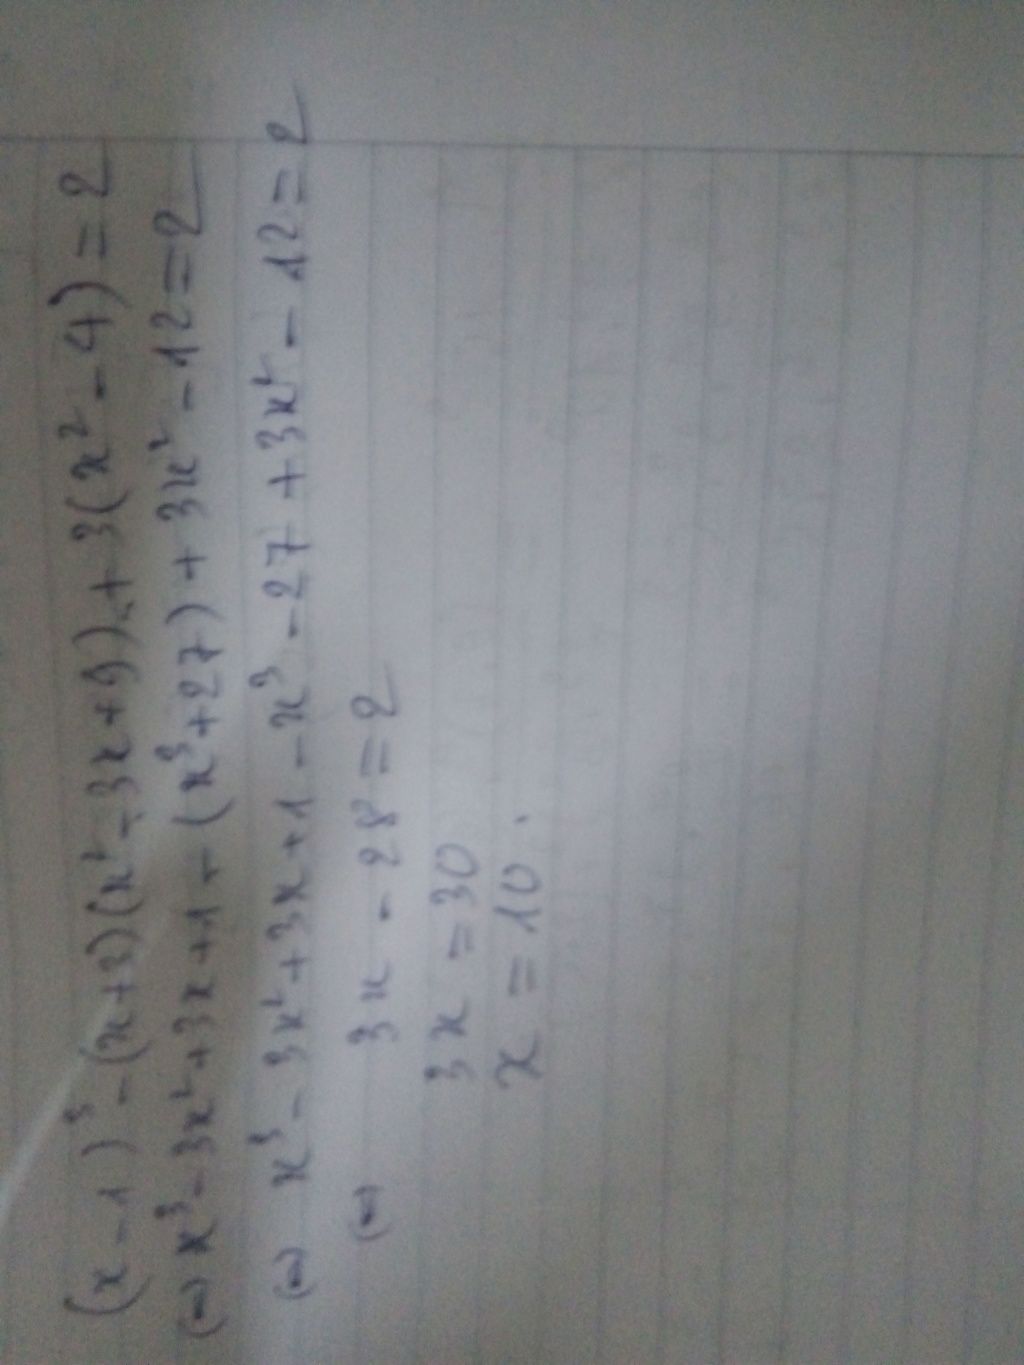 (x-1)³-(x+3)(x²-3x+9)+3(x²-4)=2
(=) x³-3x²+3x+1-(x³+27)+3x²-12=2
(=) x³-3x²+3x+1-x³-27+3x²-12=2
(=) 3x-28=2
3x=30
x=10.